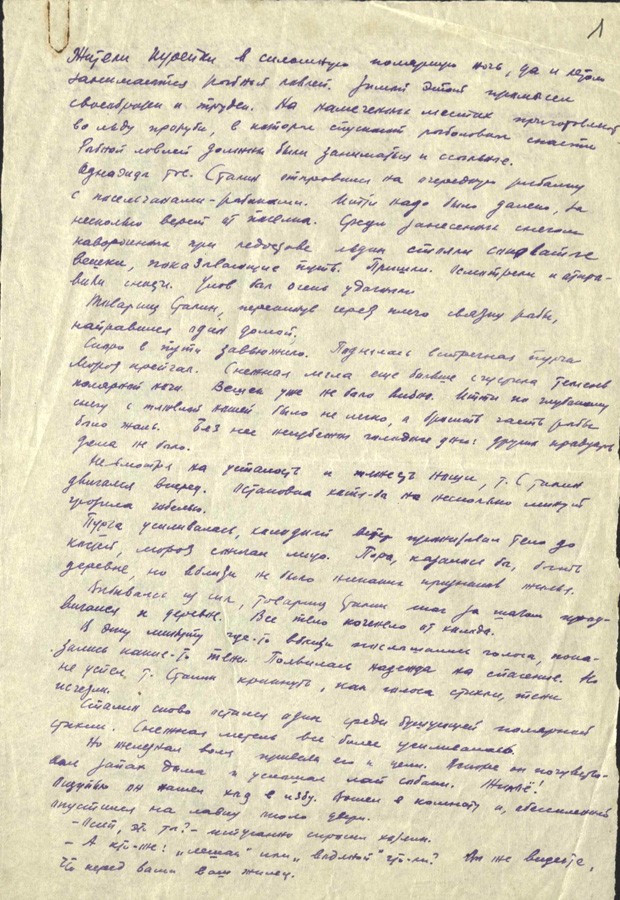 1
Жители Курейки в сплошную полярную ночь, да и летом
занимаются рыбной ловлей. Зимой этот промысел
своеобразен и труден. На намеченных местах приготовляют
во льду проруби, в которые спускают рыболовные снасти
Рыбной ловлей должны были заниматься и ссыльные.
Однажды тов. Сталин отправился на очередную рыбалку
с посельчанами-рыбаками. Итти надо было далеко, за
несколько верст от поселка. Среди занесенных снегом
навороченных при ледоставе льдин стояли
вешки, показывающие путь. Пришли. Осмотрели и
снасти. Улов был очень удачный
Товарищ Сталин, перекинув через плечо связку рыбы,
направился один домой.
Скоро в пути завьюжило. Поднялась встречная пурга
Мороз крепчал. Снежная мгла еще больше сгустила темень
полярной ночи. Вешек уже не было видно. Итти по глубокому
снегу с тяжелой ношей было не легко, а бросить часть рыбы
было жаль. Без нее неизбежны голодные дни: других продуктов
дома не было.
Несмотря на усталость и тяжесть ноши, т. Сталин
двигался вперед. Остановка хотя-бы на несколько минут
грозила гибелью.
Пурга усиливалась, холодный ветер пронизывал тело до
костей, мороз сжигал лицо. Пора, казалось бы, быть
деревне, но вблизи не было никаких признаков жилья.
Выбиваясь из сил, товарищ Сталин шаг за шагом прод-
вигался к деревне. Все тело коченело от холода.
В одну минуту где-то вблизи послышались голоса, пока-
зались какие-то тени. Появилась надежда на спасение. Но
не успел т. Сталин крикнуть, как голоса стихли, тени
исчезли.
Сталин снова остался один среди бушующей полярной
стихии. Снежная метель все более усиливалась.
Но железная воля привела его к цели. Вскоре он почувство-
вал запах дыма и услышал лай собаки. Жилье!
Ощупью он нашел ход в избу. Вошел в комнату и, обессиленный
опустился на лавку около двери.
- Осип, это ты? - испуганно спросил хозяин.
- А кто-же! „Леший" или „водяной" что-ли? Вы же видите,
что перед вами ваш жилец.